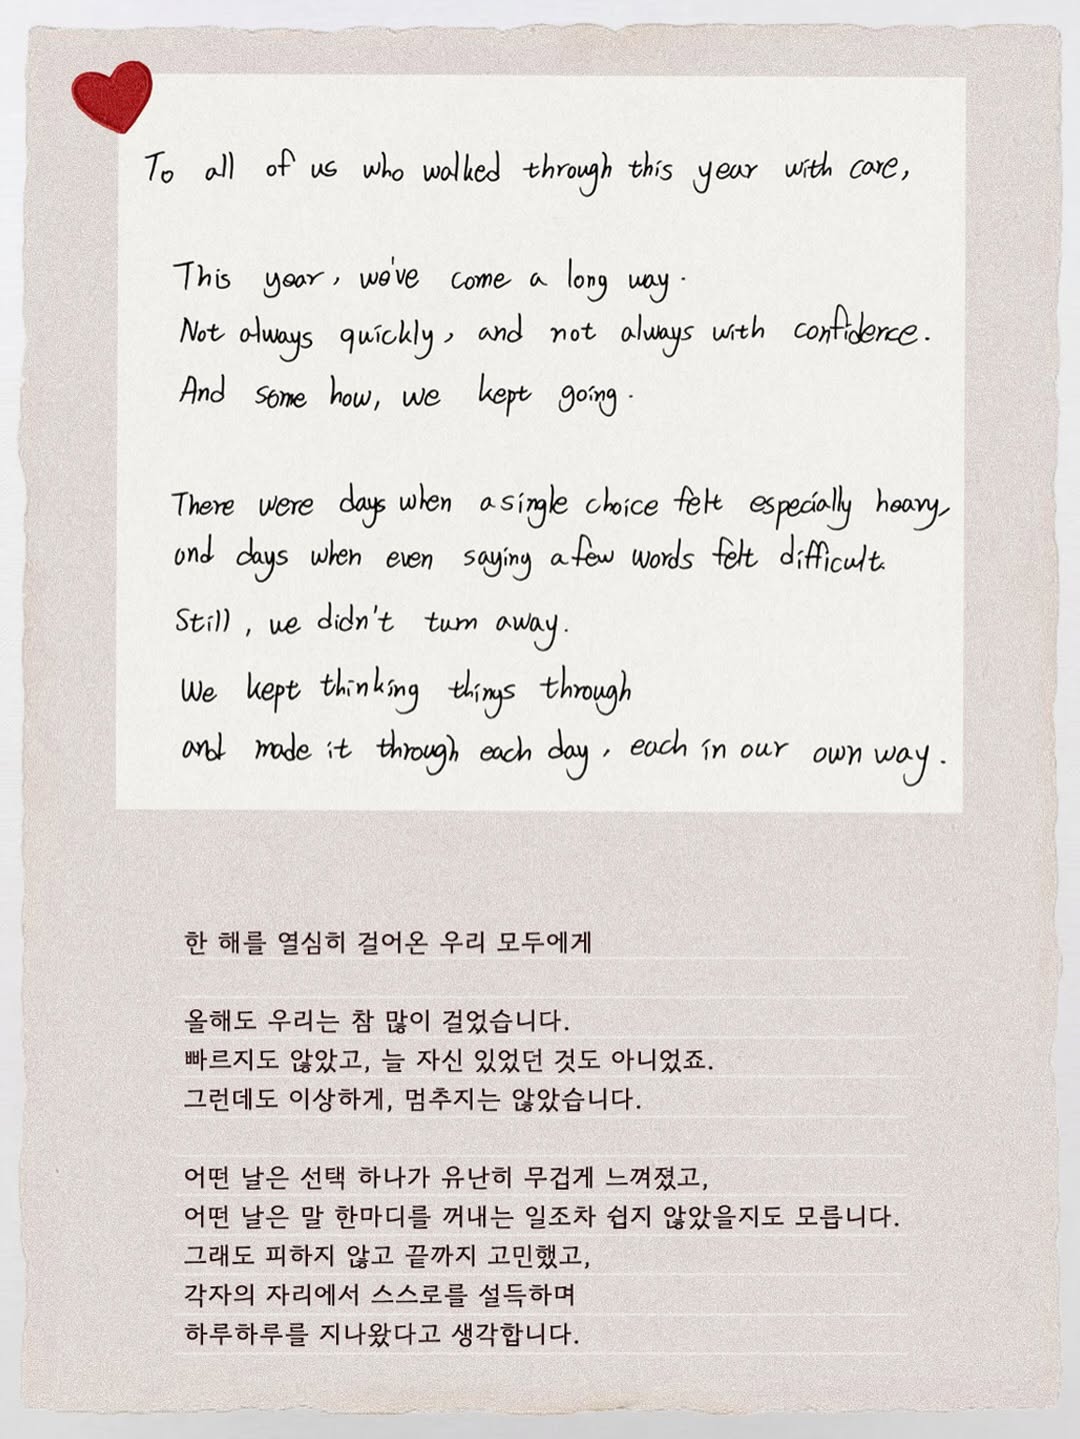 To all of us who walked through this year with care,
This year, we've come a long way.
Not always quickly, and not always with confidence.
And some how, we kept going.
There were days when a single choice felt especially heavy,
and days when even saying a few words felt difficult.
Still, we didn't turn away.
We kept thinking things through
and made it through each day, each in our own way.
한 해를 열심히 걸어온 우리 모두에게
올해도 우리는 참 많이 걸었습니다.
빠르지도 않았고, 늘 자신 있었던 것도 아니었죠.
그런데도 이상하게, 멈추지는 않았습니다.
어떤 날은 선택 하나가 유난히 무겁게 느껴졌고,
어떤 날은 말 한마디를 꺼내는 일조차 쉽지 않았을지도 모릅니다.
그래도 피하지 않고 끝까지 고민했고,
각자의 자리에서 스스로를 설득하며
하루하루를 지나왔다고 생각합니다.